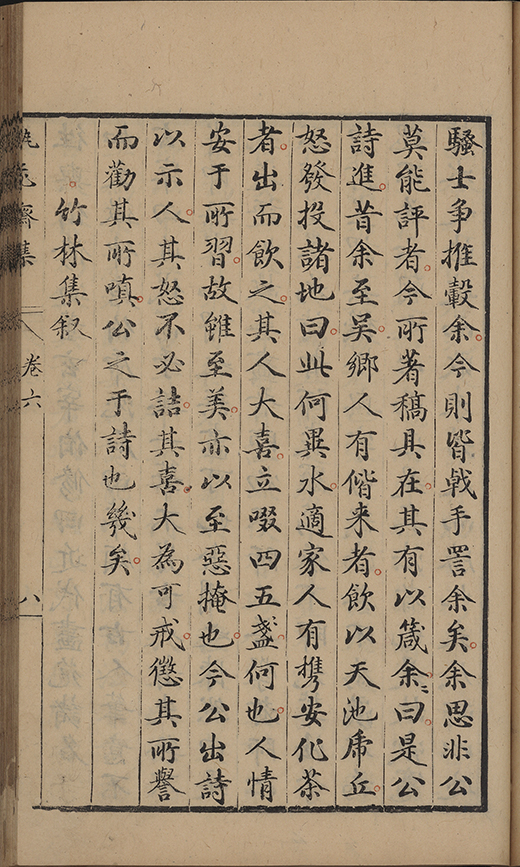 騷士争推轂余今則皆戟手詈余矣余思非公
莫能評者今所著稿具在其有以箴余余曰是公
詩進昔余至吳鄉人有偕来者飲以天池虎丘
怒發投諸地曰此何異水適家人有携安化茶
者出而飲之其人大喜立啜四五盞何也人情
安于所習故雖至美亦以至惡掩也今公出詩
以示人其怒不必詰其喜大為可戒懲其所譽
而勸其所嗔公之于詩也幾矣
竹林集叙
齋集
卷六
八